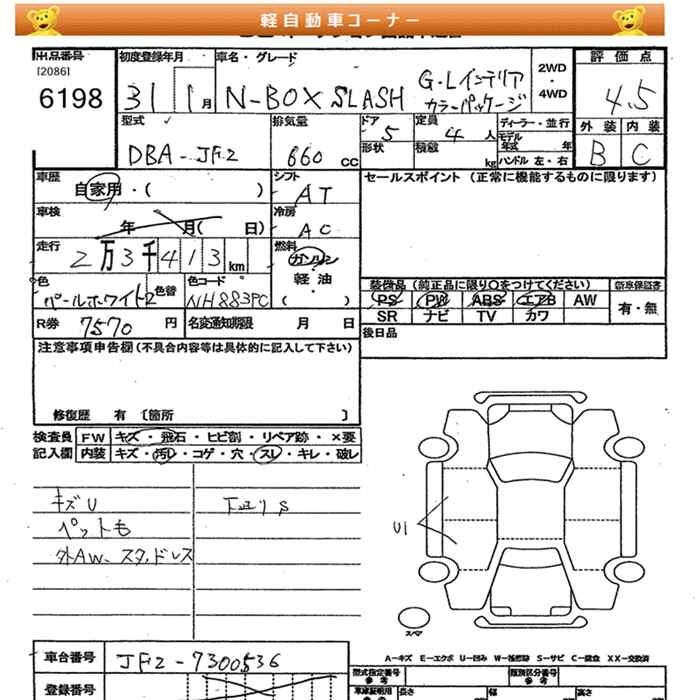 軽自動車コーナー
出品番号
[2086]
6198
初度登録年月
31 1月
車名・グレード
N-BOX SLASH
G・Lインテリア
カラーパッケージ
2WD
・
4WD
評価点
4.5
外装 内装
B C
型式
DBA-JF2
排気量
660 cc
ドア 5
形状
定員 4 人
積載 kg
ディーラー・並行
モデル年式 年
ハンドル 左・右
車歴
自家用・( )
シフト
AT
セールスポイント (正常に機能するものに限ります)
車検
年 月( 日)
冷房
AC
走行
2万3千413km
燃料
ガソリン
軽油
( )
色
パールホワイト2
色替
色コード
NH883PC
装備品 (前純正品に限り○をつけてください)
新車保証書
PS PW ABS エアB AW
SR ナビ TV カワ
有・無
R券 7570 円
名変通知期限 月 日
後日品
注意事項申告欄(不具合内容等は具体的に記入して下さい)
修復歴 有 [箇所 ]
検査員
記入欄
FW キズ・飛石・ヒビ割・リペア跡・×要
内装 キズ・汚れ・コゲ・穴・スレ・キレ・破レ
キズU
下廻りS
ペットも
外AW、スタッドレス
U1
スペア
車台番号
JF2-7300536
A-キズ E-エクボ U-凹み S-サビ C-腐食 XX-交換済
登録番号
型式指定番号
参考
類別区分番号
参考
車庫証明用
長さ
幅
高さ